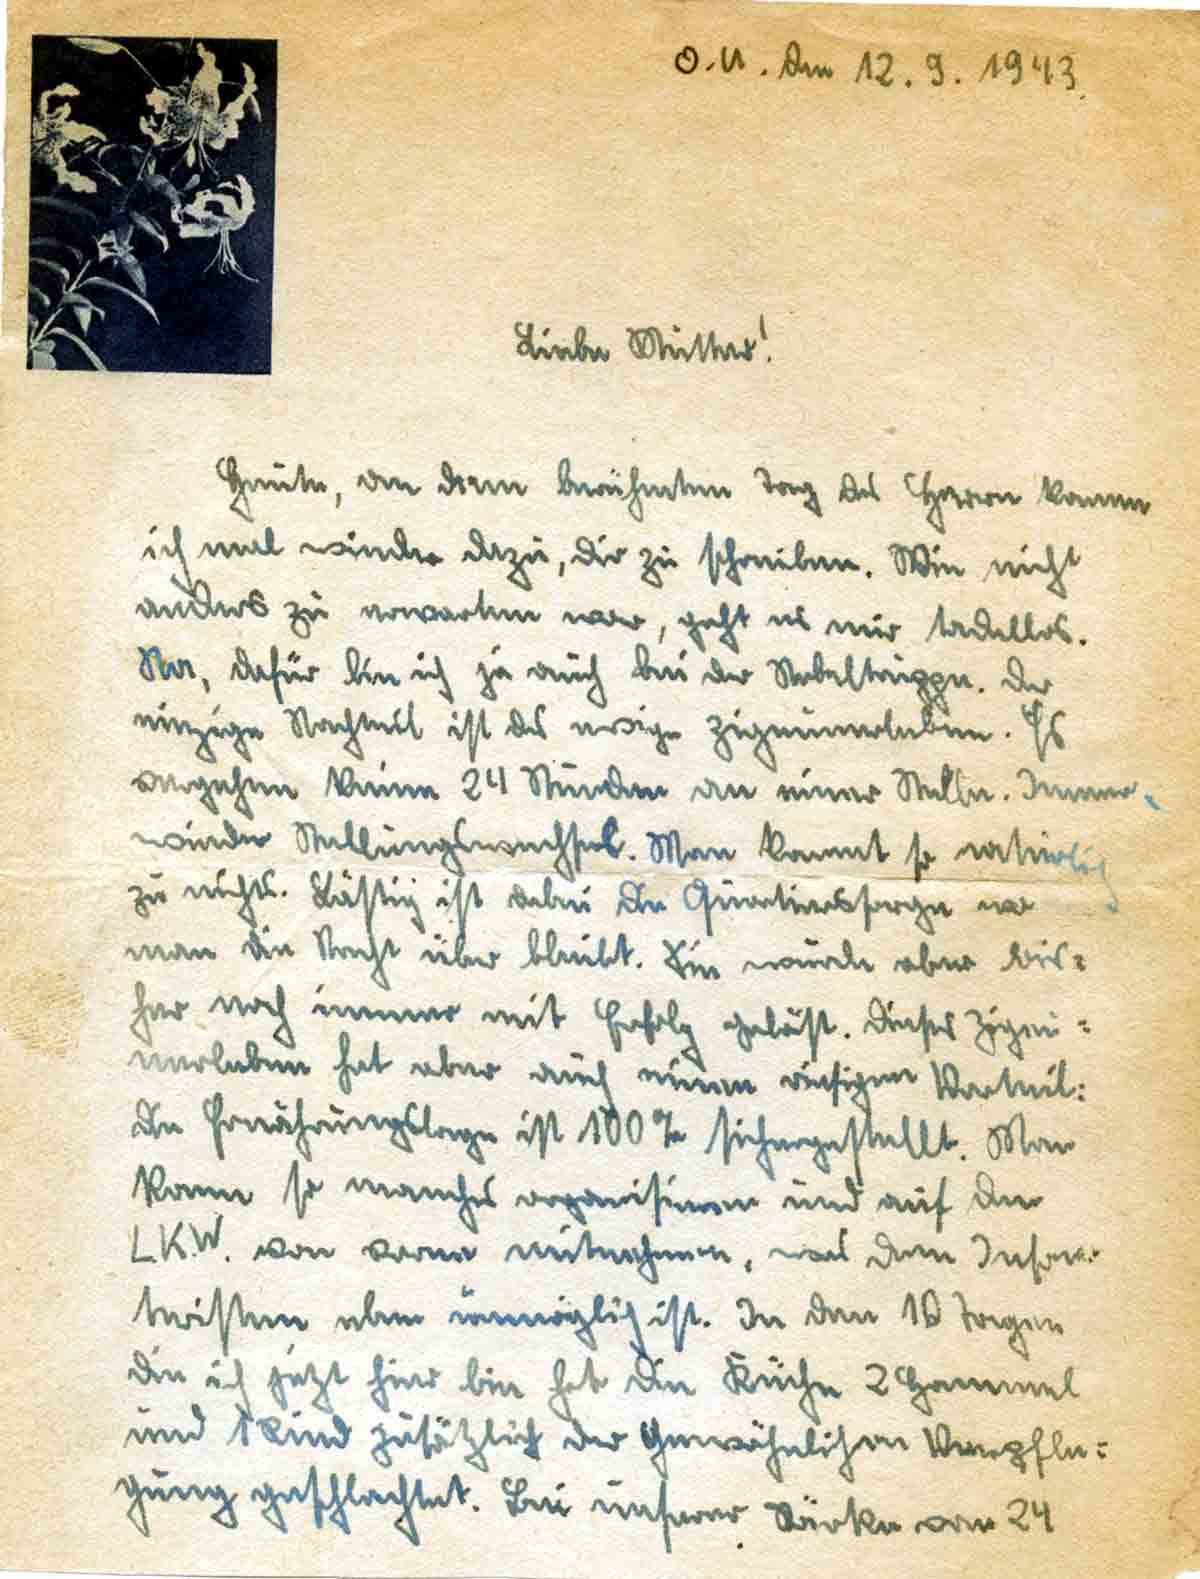 O.U. den 12.9.1943.
Liebe Mutter!
Heute, an dem berühmten Tag des Herrn komme
ich mal wieder dazu, dir zu schreiben. Wie nicht
anders zu erwarten war, geht es mir tadellos.
Na, dafür bin ich ja auch bei der Nebeltruppe. Der
einzige Nachteil ist das ewige Zigeunerleben. Es
vergehen keine 24 Stunden an einer Stelle. Immer
wieder Stellungswechsel. Man kommt so natürlich
zu nichts. Lästig ist dabei die Quartiersorge wo
man die Nacht über bleibt. Sie wurde aber bis=
her noch immer mit Erfolg gelöst. Dieses Zigeu=
nerleben hat aber auch einen riesigen Vorteil:
die Ernährungslage ist 100% sichergestellt. Man
kann so manches organisieren und auf den
L.K.W. von vorne mitnehmen, was dem Infan=
tristen eben unmöglich ist. In den 10 Tagen
die ich jetzt hier bin hat die Küche 2 Hammel
und 1 Rind zusätzlich der gewöhnlichen Verpfle=
gung geschlachtet. Bei unserer Stärke von 24